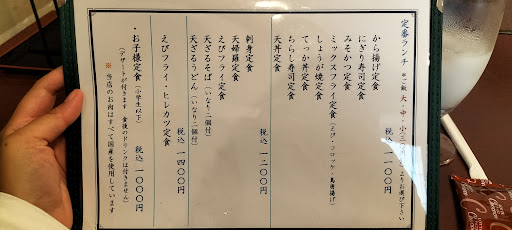 定番ランチ
から揚げ定食
にぎり寿司定食
みそかつ定食
ミックスフライ定食(えび・コロッケ・鳥唐揚げ)
しょうが焼定食
てっか丼定食
ちらし寿司定食
天丼定食
税込 一二〇〇円
刺身定食
天婦羅定食
えびフライ定食
天ざるそば(いなり二個付)
天ざるうどん(いなり二個付)
税込 一四〇〇円
えびフライ・ヒレカツ定食
・お子様定食(小学生以下)
税込 一〇〇〇円
(デザートが付きます 食後のドリンクは付きません)
※当店のお肉はすべて国産を使用しています